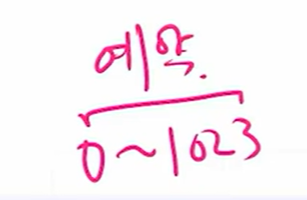 예약.
0~1023